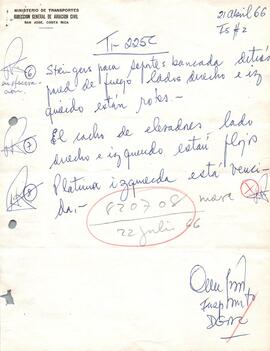 MINISTERIO DE TRANSPORTES
DIRECCION GENERAL DE AVIACION CIVIL
SAN JOSE, COSTA RICA
21 abril 66
TI-225C
6 Stingers para soportes bancada detrás
pared de fuego lados derecho e iz
quierdo están rotos.-
7 El cacho de elevadores lado
derecho e izquierdo están flojos
8 Platina izquierda está venci
da.-
820708
22 julio 66
DGAC